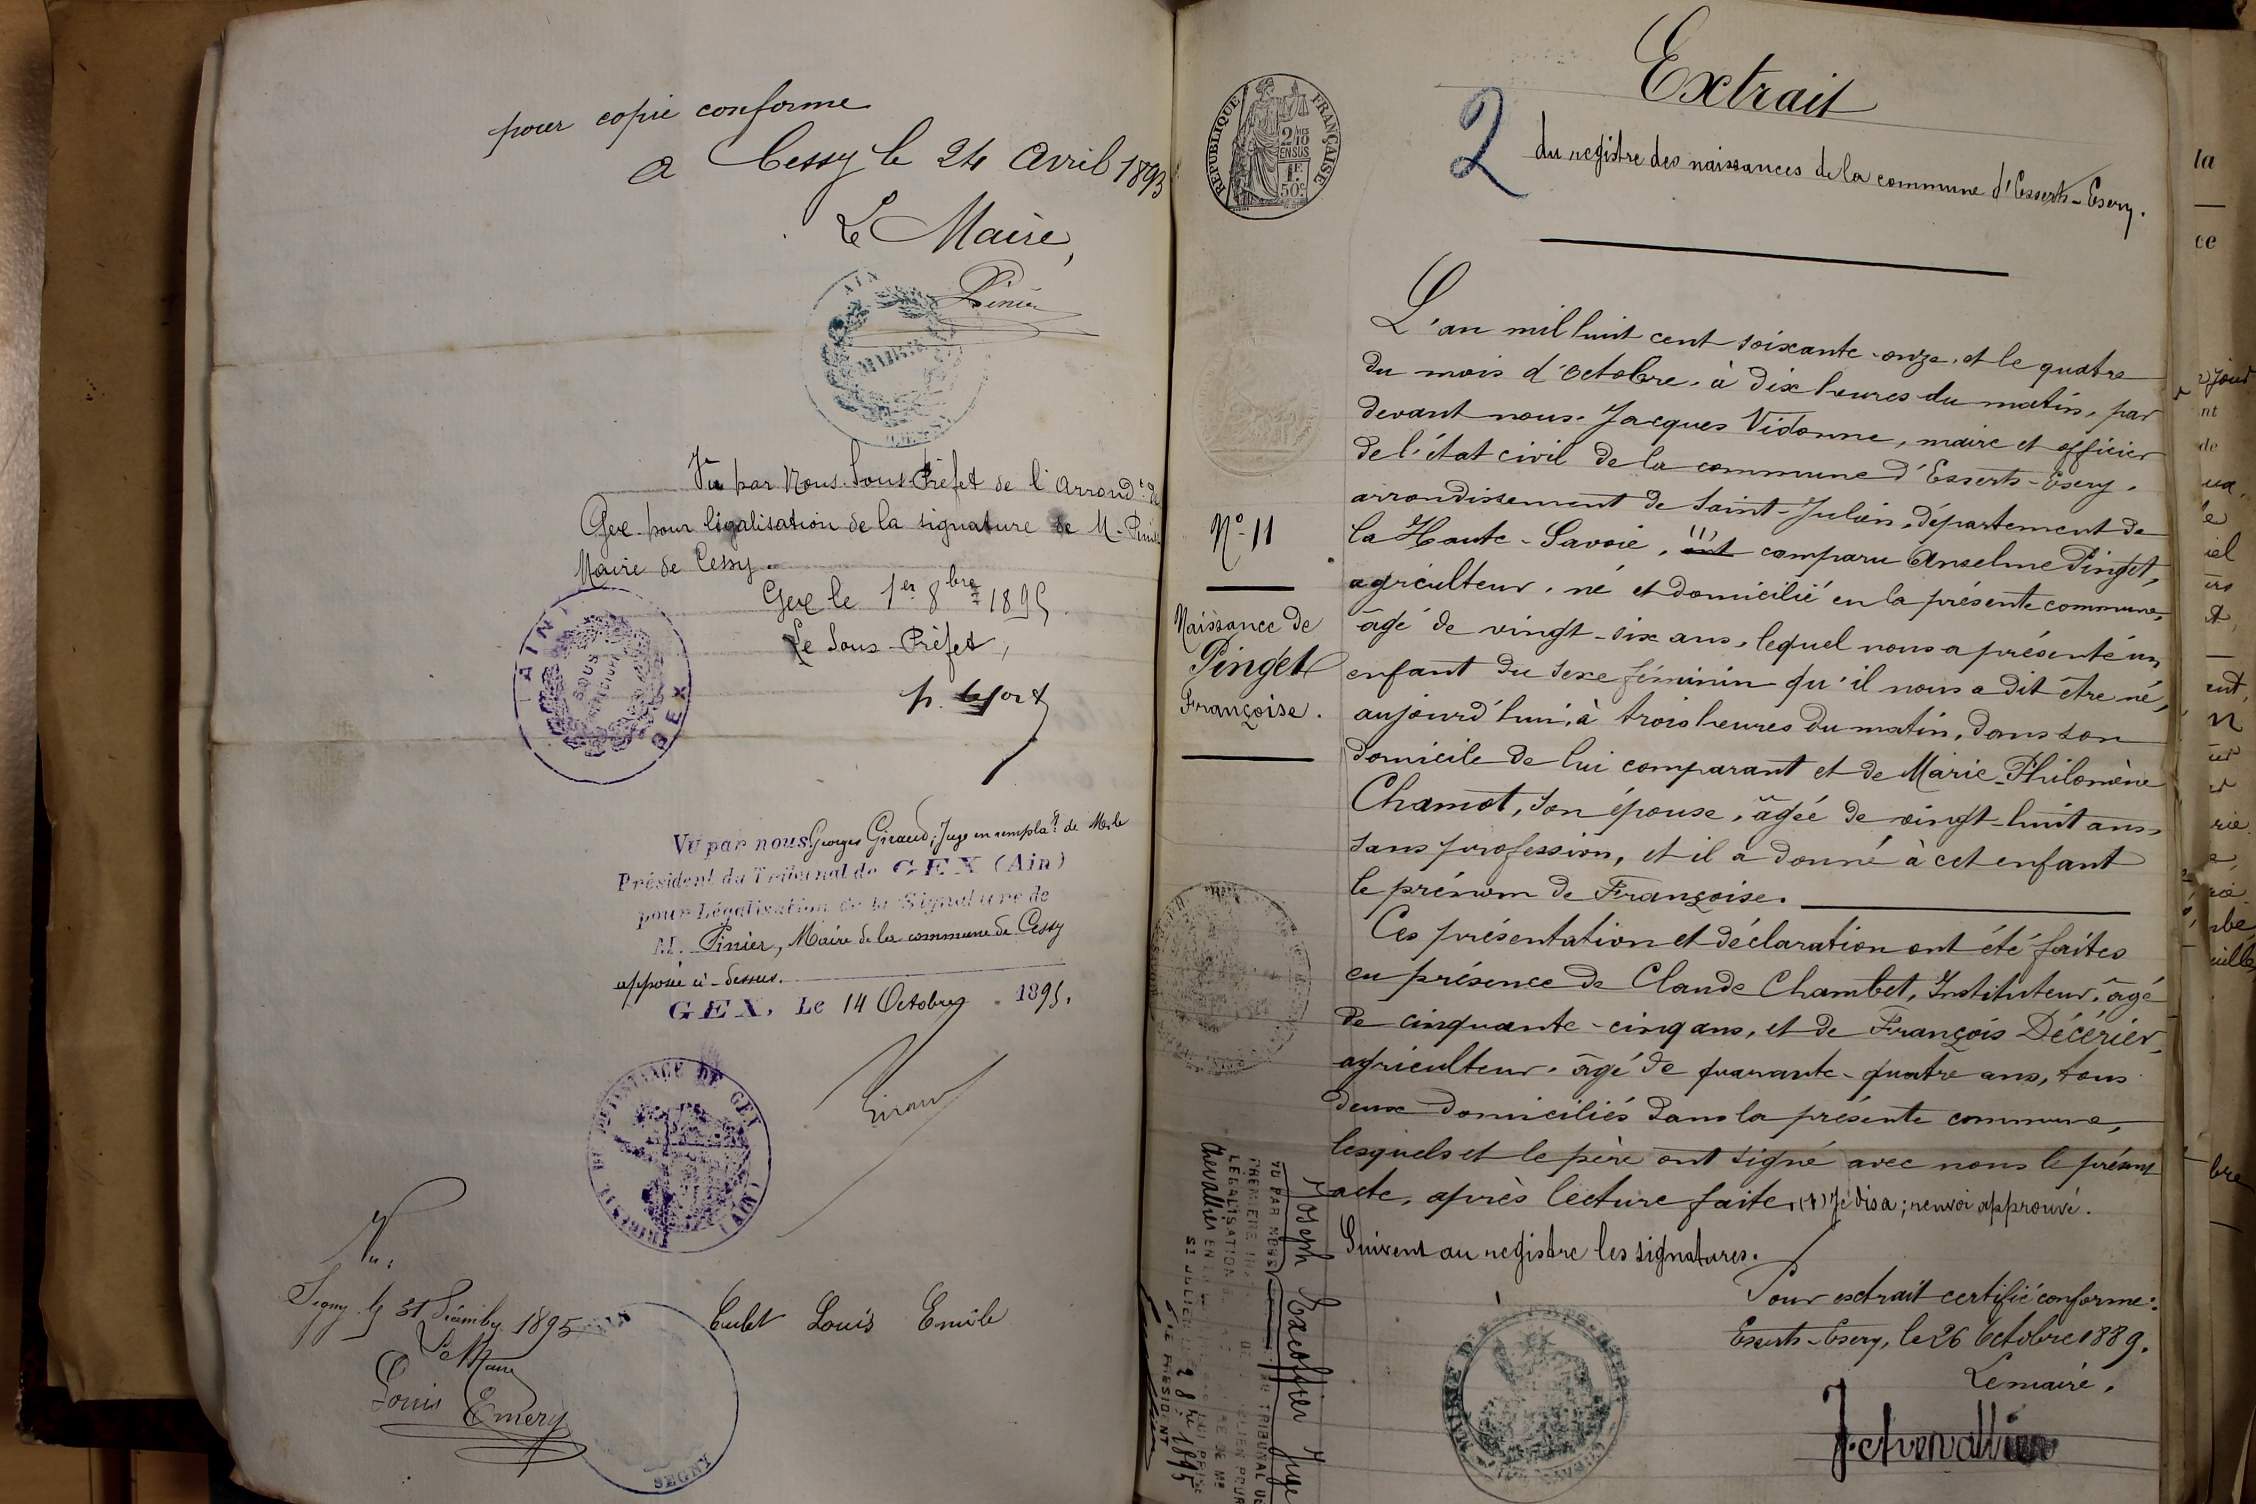 pour copie conforme
a Cessy le 24 Avril 1893
Le Maire,
Pinier
AIN
MAIRIE
Vu par Nous Sous Préfet de l'Arrondt de
Gex pour légalisation de la signature de M. Pinier
Maire de Cessy.
Gex le 1er 8bre 1895.
Le Sous-Préfet,
AIN
SOUS
GEX
Vu par nous Georges Giraud, Juge en remplat de Mr le
Président du Tribunal de GEX (Ain)
pour Légalisation de la Signature de
M. Pinier, Maire de la commune de Cessy
apposée ci-dessus.
GEX, Le 14 Octobre 1895.
Giraud
INSTANCE DE GEX (AIN)
Vu:
Segny le 31 Décembre 1895
Le Maire
Louis Emery
SEGNY
Culet Louis Emile
RÉPUBLIQUE FRANÇAISE
2/10
EN SUS
1F.
50c
2
Extrait
du registre des naissances de la commune d'Esserts-Esery.
N° 11
Naissance de
Pinget
Françoise.
L'an mil huit cent soixante-onze, et le quatre
du mois d'Octobre, à dix heures du matin, par
devant nous, Jacques Vidonne, maire et officier
de l'état civil de la commune d'Esserts-Esery,
arrondissement de Saint-Julien, département de
la Haute-Savoie, (1) ont comparu Anselme Pinget,
agriculteur, né et domicilié en la présente commune,
âgé de vingt-six ans, lequel nous a présenté un
enfant du sexe féminin qu'il nous a dit être né,
aujourd'hui, à trois heures du matin, dans son
domicile de lui comparant et de Marie-Philomène
Chamot, son épouse, âgée de vingt-huit ans,
sans profession, et il a donné à cet enfant
le prénom de Françoise.
Ces présentation et déclaration ont été faites
en présence de Claude Chambet, Instituteur, âgé
de cinquante-cinq ans, et de François Décérier,
agriculteur, âgé de quarante-quatre ans, tous
deux domiciliés dans la présente commune,
lesquels et le père ont signé avec nous le présent
acte, après lecture faite. (1) Je dis a; renvoi approuvé.
Suivent au registre les signatures.
Pour extrait certifié conforme:
Esserts-Esery, le 26 Octobre 1889.
Le maire,
J. Chevallier
VU PAR NOUS Joseph Excoffier Juge
AU TRIBUNAL DE
PREMIERE
LÉGALISATION
Chevallier
ST JULIEN
28 1895
LE PRÉSIDENT